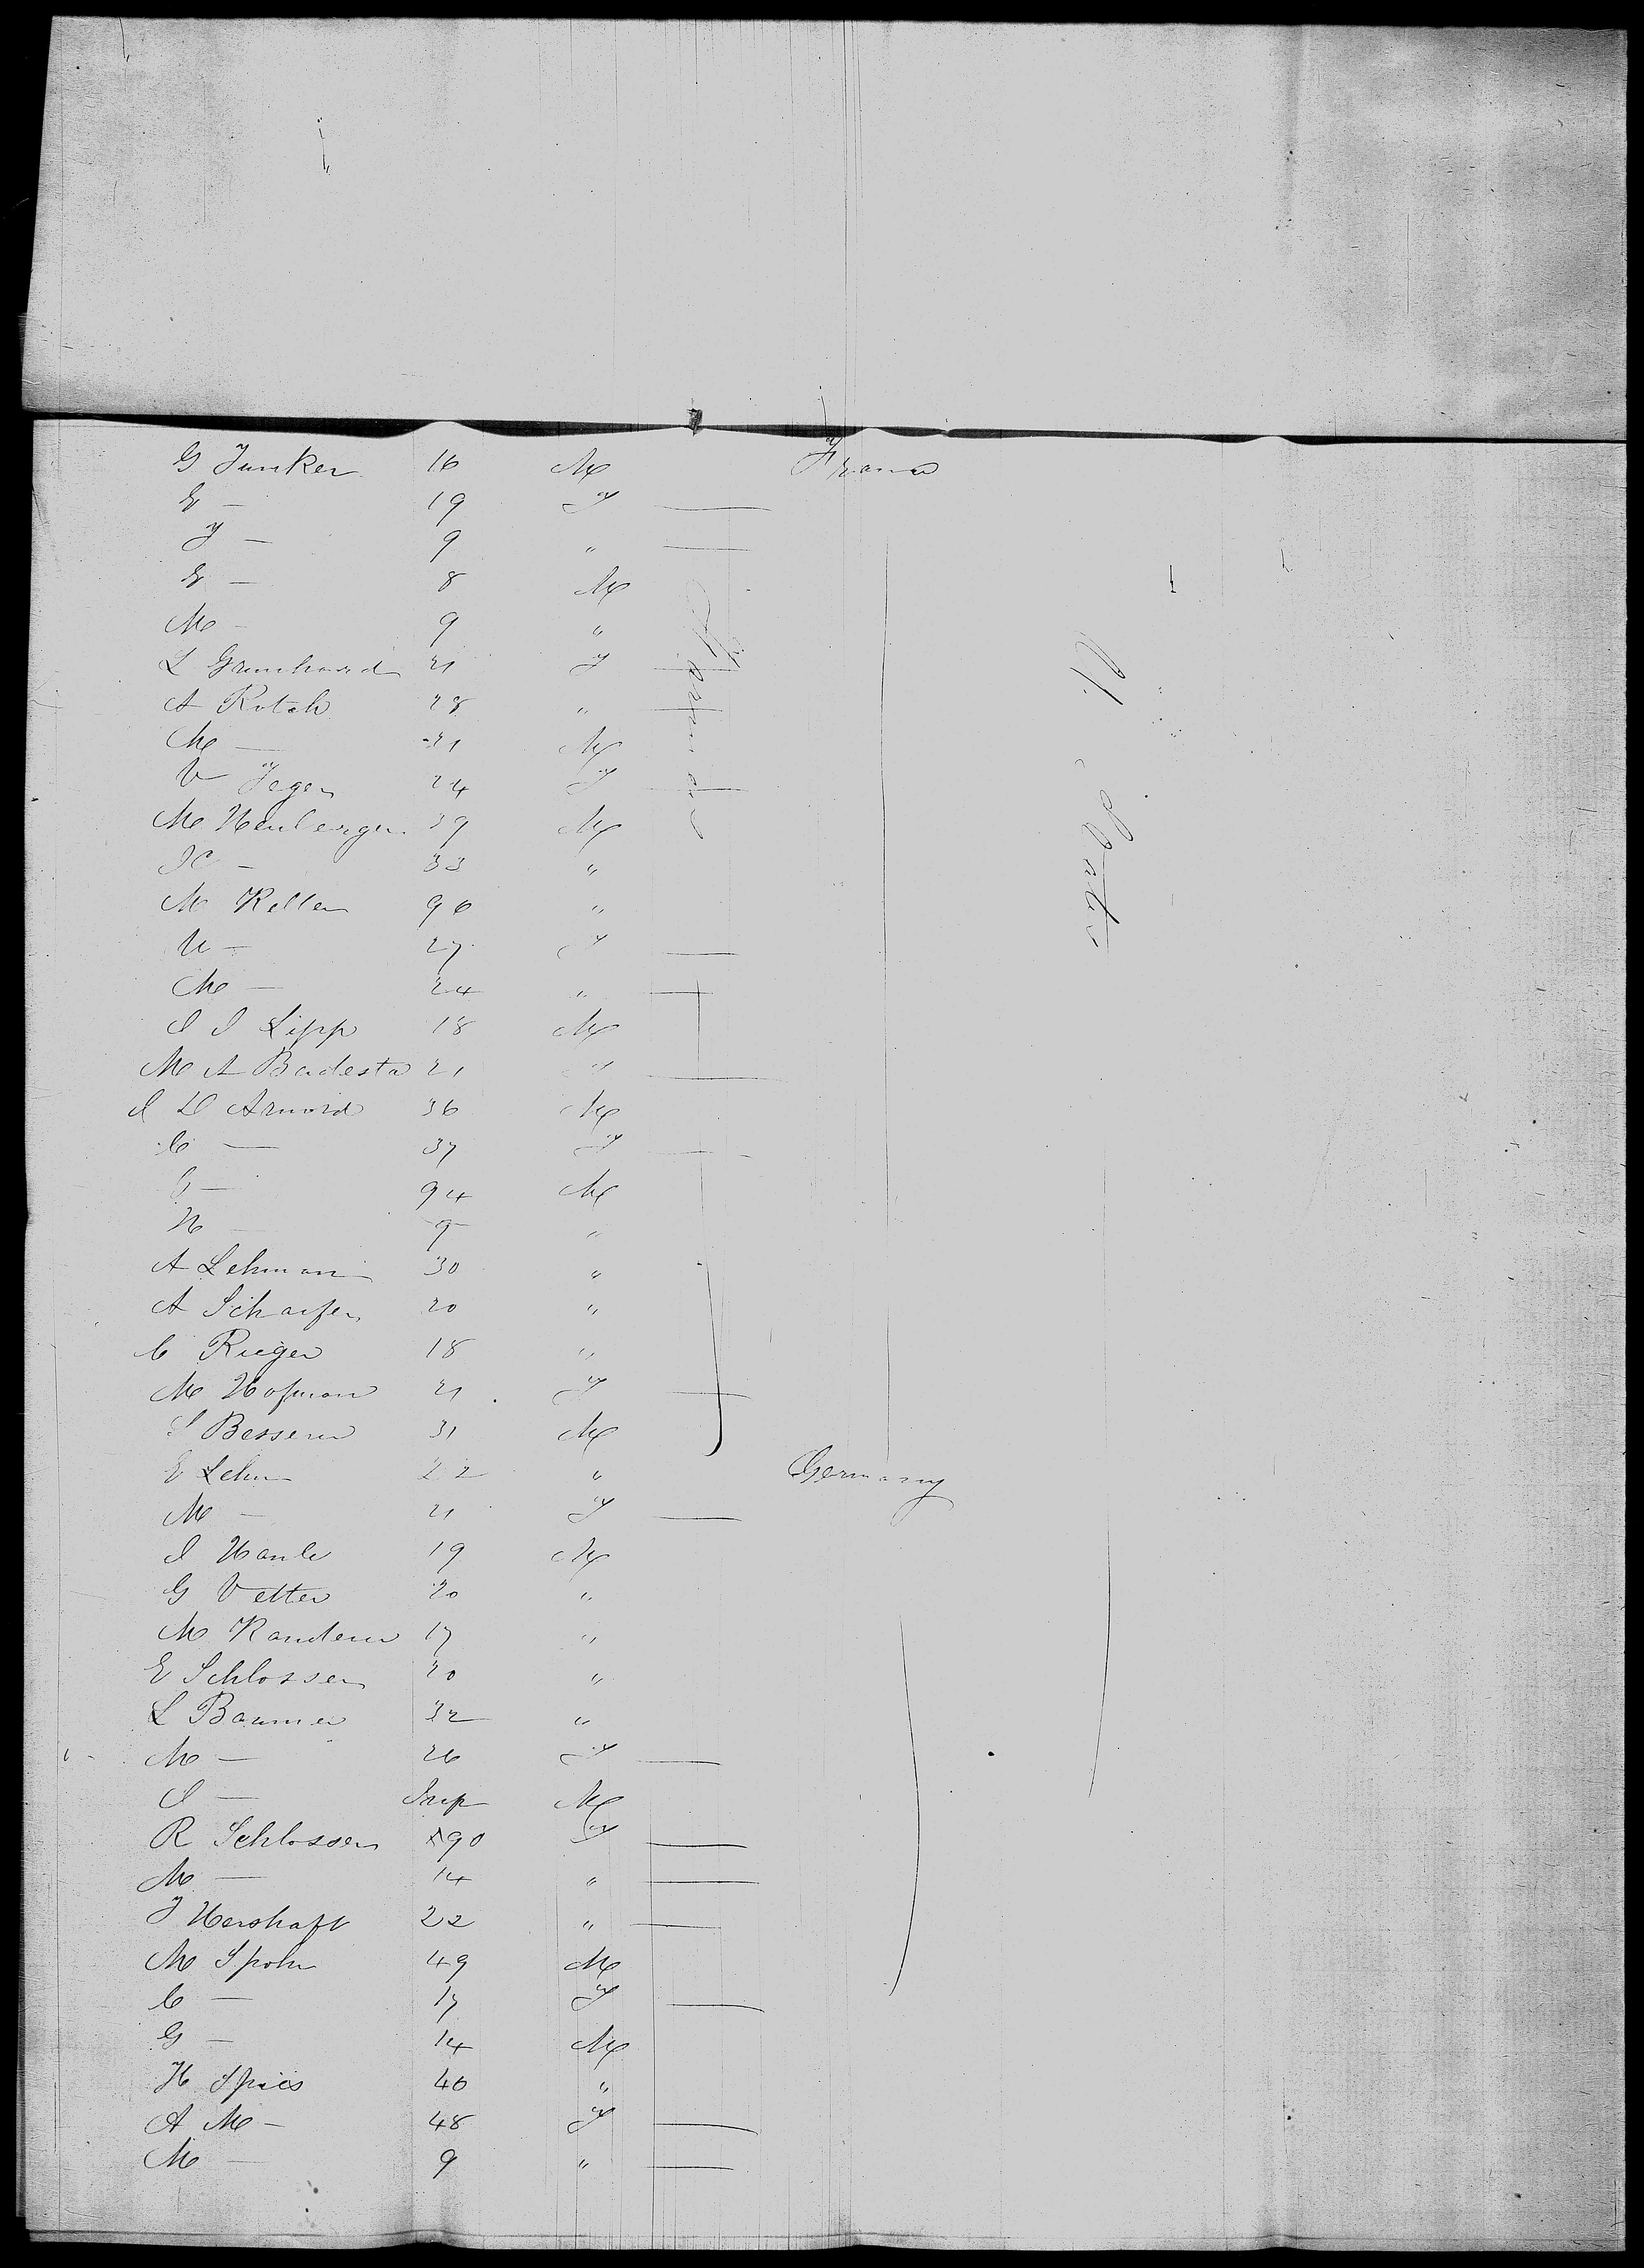 G Junker 16 M France
E — 19 F —
F — 9 " —
E — 8 M
M — 9 "
L Grunhard 21 F —
A Rotch 28 " —
M — 21 M
V Jeger 24 F —
M Heuberger 39 M
J C — 33 "
M Keller 96 "
U — 27 F —
M — 24 " —
J J Lipp 18 M
M A Badesta 21 " —
J D Arnord 36 M
C — 37 F —
G — 94 M
H — 9 "
A Lehman 30 "
A Schaefer 20 "
C Rieger 18 "
M Hofman 21 F —
S Besserer 31 M
E Lehn 22 " Germany
M — 21 F —
J Hanle 19 M
G Vetter 20 "
M Randerer 17 "
E Schlosser 20 "
L Baumer 32 "
M — 26 F —
J — Inf M
R Schlosser 90 F —
M — 14 " —
F Hershaft 22 " —
M Spohn 49 M
C — 17 F —
G — 14 M
H Spies 40 "
A M — 48 F —
M — 9 " —
U. States